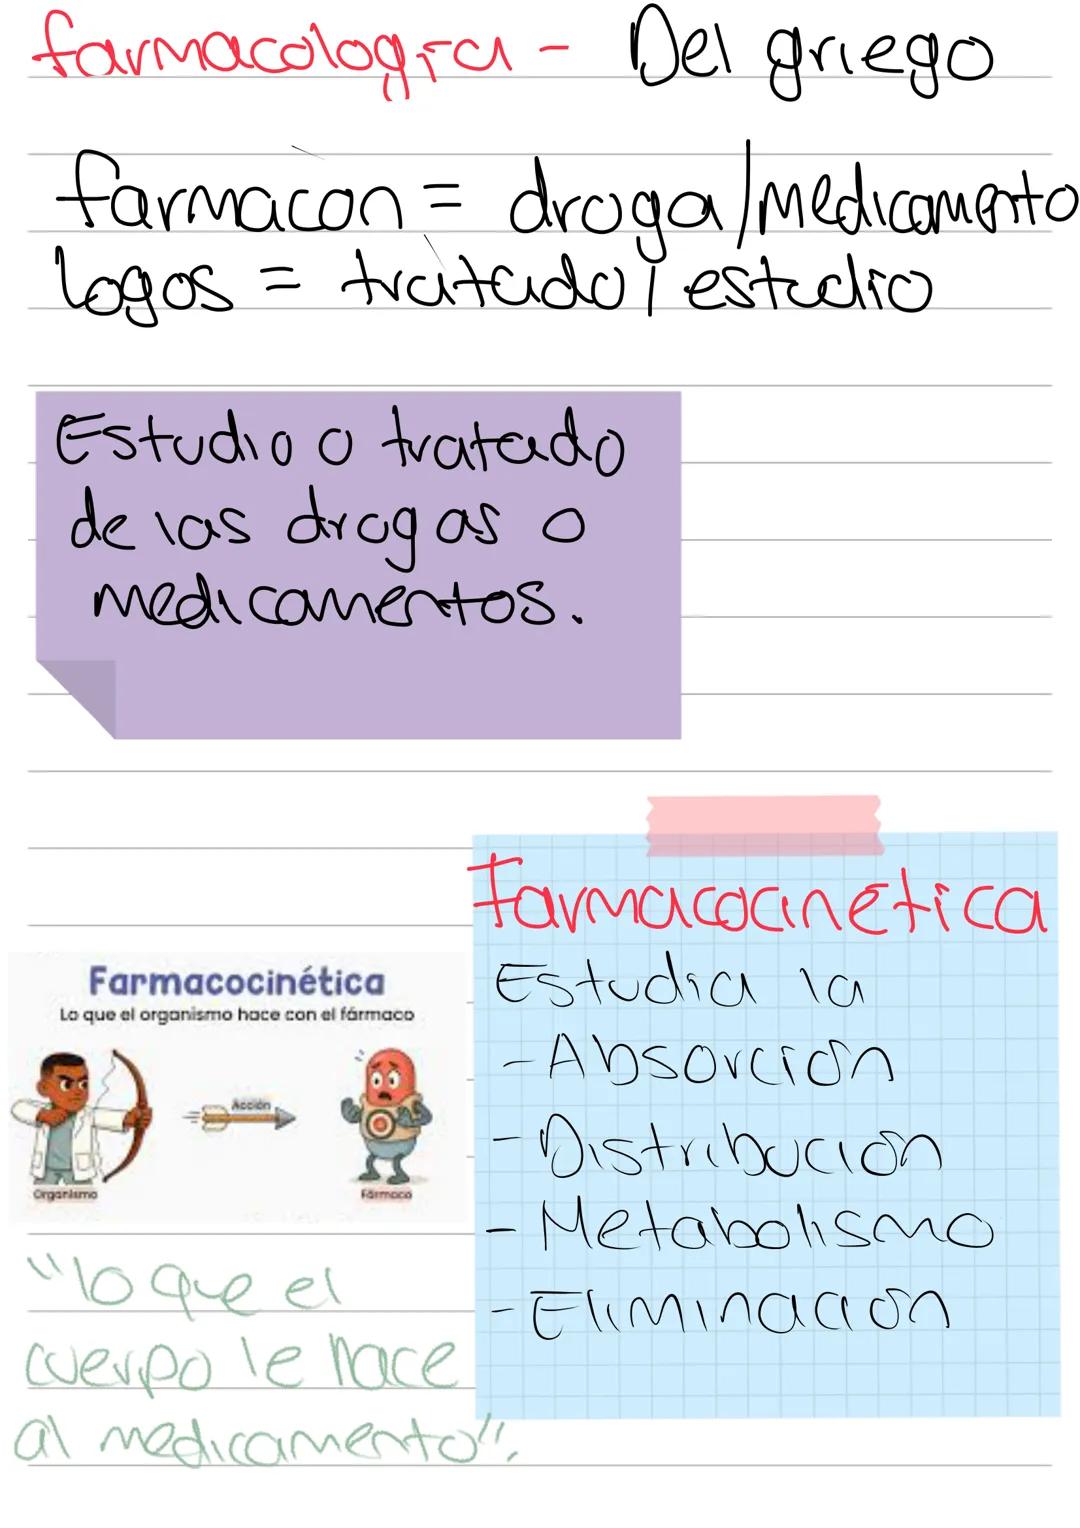 farmacología - Del griego
farmacon = droga/medicamento
logos = tratado/estudio
Estudio o tratado
de las drogas o
medicamentos.
Farmacocinética
Estudia la
- Absorción
- Distribución
- Metabolismo
- Eliminación
Farmacocinética
Lo que el organismo hace con el fármaco
Acción
Organismo
Fármaco
"lo que el
cuerpo le hace
al medicamento".